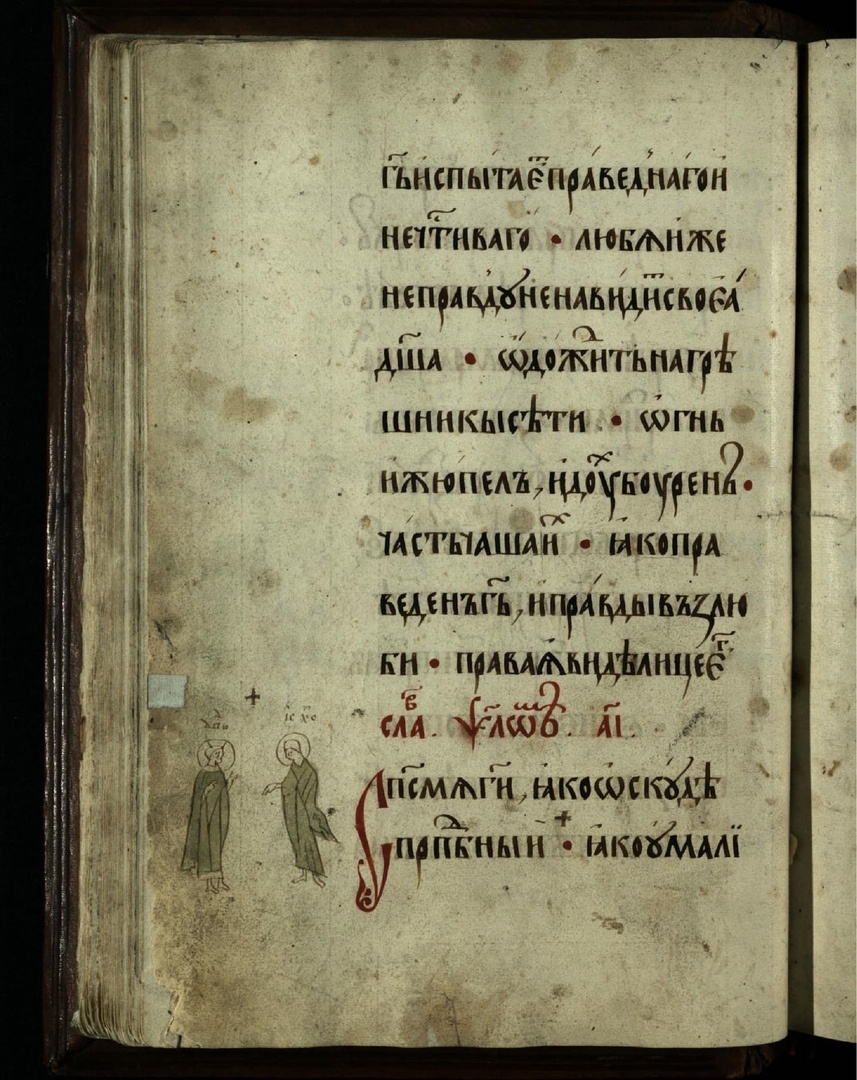 гь҃испытае҆тпра́веднагои
нечт҃иваго • любѧиже
неправдꙋненавидитсвоеѧ̀
дш҃а • ѿдождитьнагрѣ
шникысѣти • ѡгнь
ижюпелъ, идоухбоуренъ •
частьчашаих • ꙗкопра
веденъгь҃, иправдывъꙁлю
би • праваꙗвидѣлицеег
сла в. ѱл҃ѡмъ. аı҃.
дв҃дъ іс х҃с
Сп҃смѧги҃, ꙗкоѡскꙋдѣ
прп҃бныи • ꙗкоꙋмалї